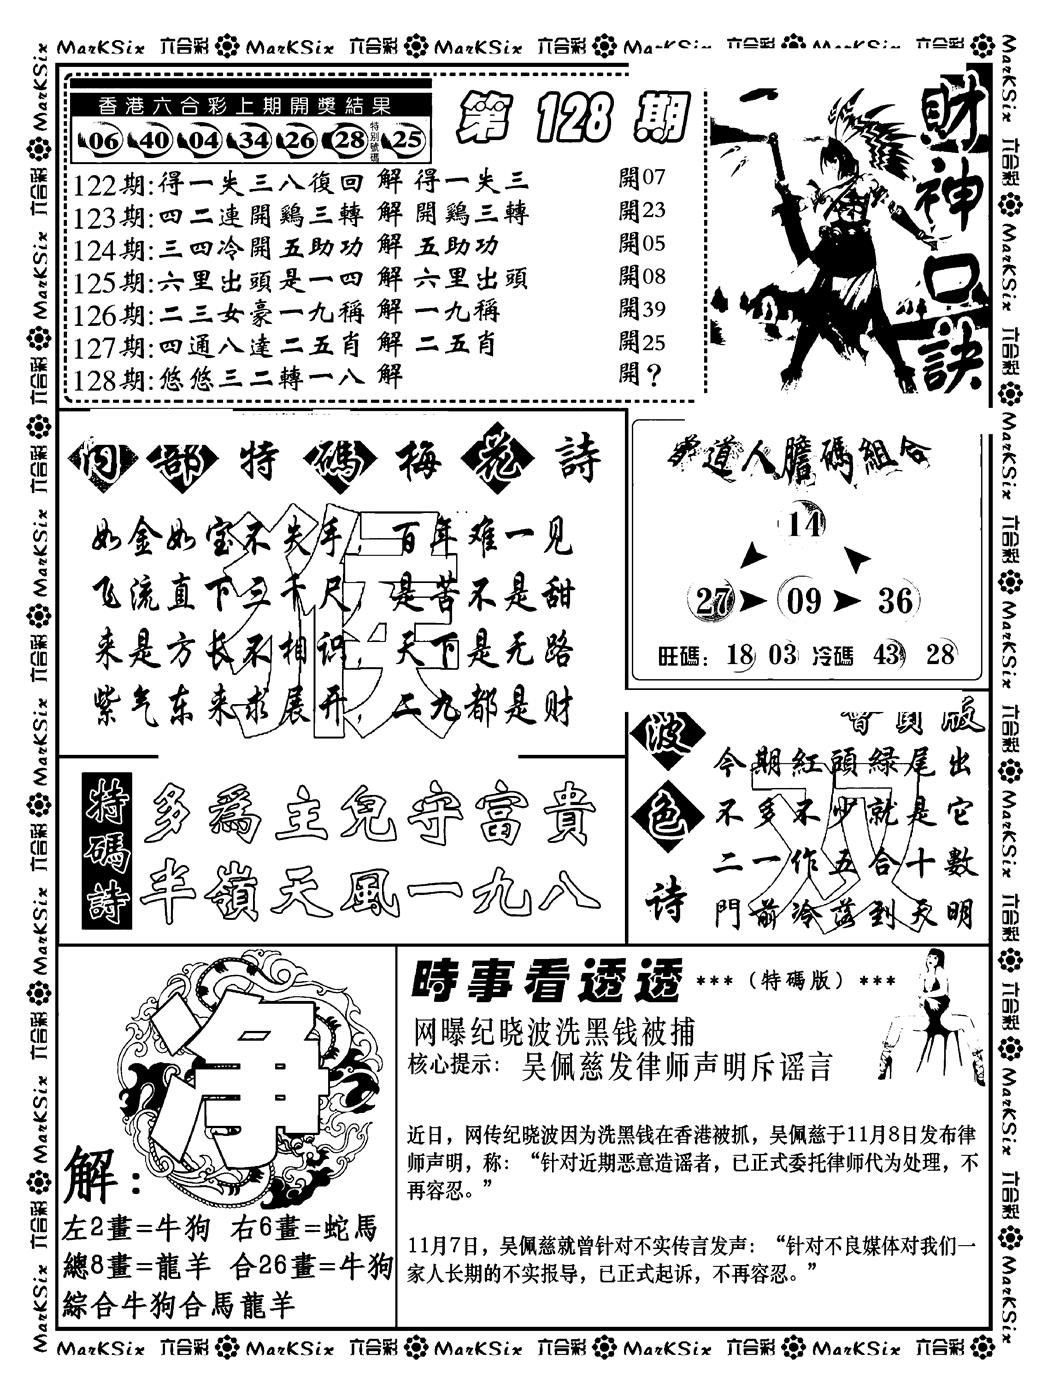 MarKSix 六合彩 MarKSix 六合彩 MarKSix 六合彩 MarKSix 六合彩 MarKSix 六合彩
香港六合彩上期開獎結果
06 40 04 34 26 28 特別號碼 25
第 128 期
122期:得一失三八復回 解 得一失三 開07
123期:四二連開鷄三轉 解 開鷄三轉 開23
124期:三四冷開五助功 解 五助功 開05
125期:六里出頭是一四 解 六里出頭 開08
126期:二三女豪一九稱 解 一九稱 開39
127期:四通八達二五肖 解 二五肖 開25
128期:悠悠三二轉一八 解 開?
財神口訣
内部特碼梅花詩
猴
如金如宝不失手，百年难一见
飞流直下三千尺，是苦不是甜
来是方长不相识，天下是无路
紫气东来求展开，二九都是财
道人膽碼組合
14
27 09 36
旺碼：18 03 冷碼 43 28
特碼詩
多為主兒守富貴
半嶺天風一九八
波色诗
會員版
双
今期紅頭緑尾出
不多不少就是它
二一作五合十數
門前冷落到天明
净
解：
左2畫=牛狗 右6畫=蛇馬
總8畫=龍羊 合26畫=牛狗
綜合牛狗合馬龍羊
時事看透透 ***（特碼版）***
网曝纪晓波洗黑钱被捕
核心提示: 吴佩慈发律师声明斥谣言
近日，网传纪晓波因为洗黑钱在香港被抓，吴佩慈于11月8日发布律
师声明，称：“针对近期恶意造谣者，已正式委托律师代为处理，不
再容忍。”
11月7日，吴佩慈就曾针对不实传言发声：“针对不良媒体对我们一
家人长期的不实报导，已正式起诉，不再容忍。”
MarKSix 六合彩 MarKSix 六合彩 MarKSix 六合彩 MarKSix 六合彩 MarKSix 六合彩